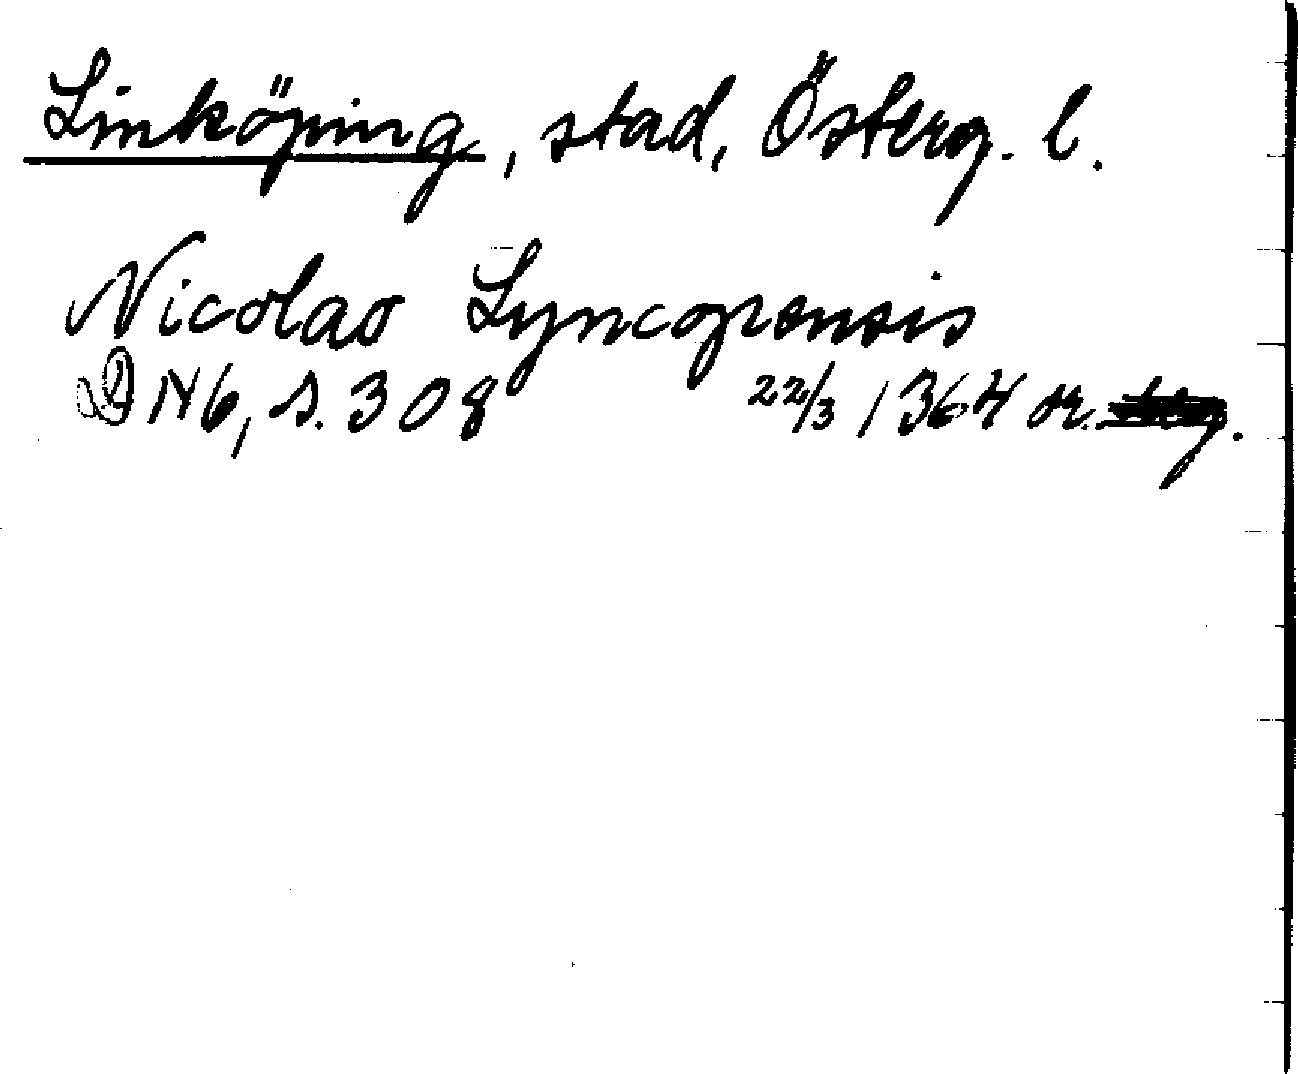 Linköping, stad, Österg. l.
Nicolao Lyncopensis
DN6, s. 308 22/3 1364 or.